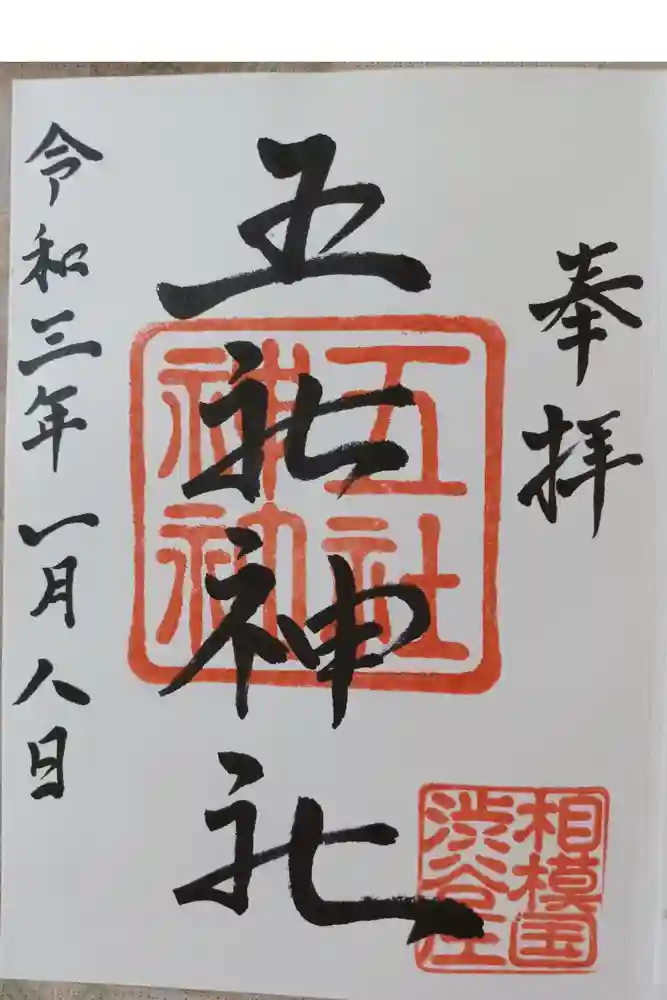 奉拝
五社神社
令和三年一月八日
相模国
渋谷庄